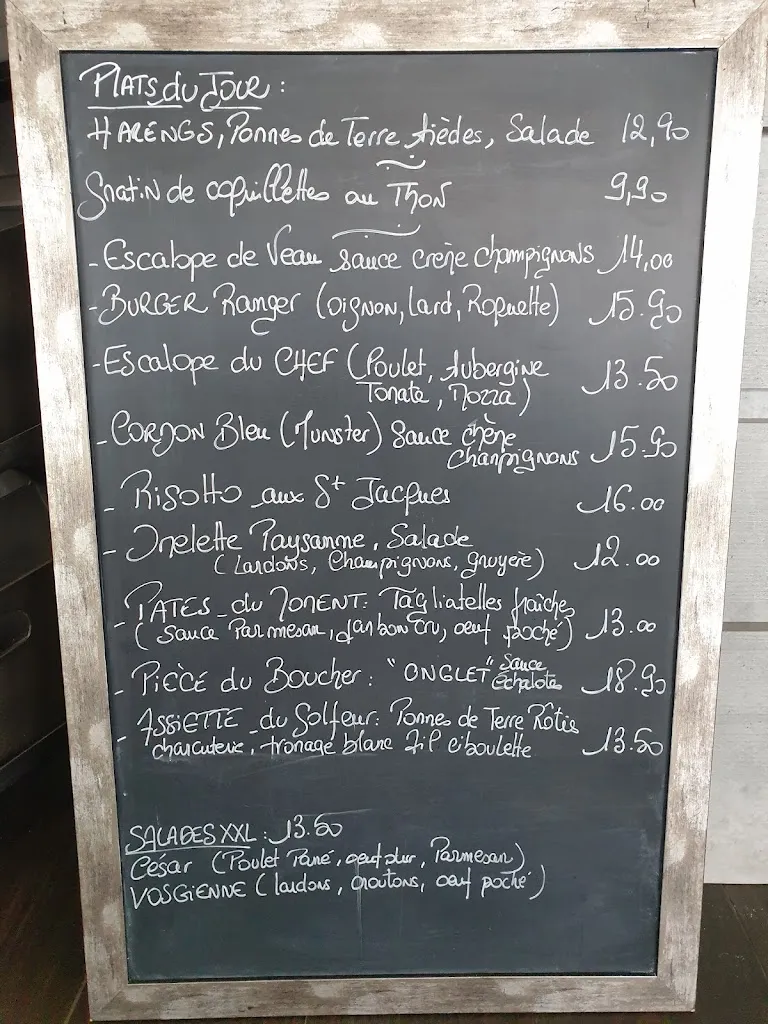 PLATS du JOUR :
HARENGS, Pommes de Terre tièdes, Salade 12,90
Gratin de coquillettes au THON 9,90
- Escalope de Veau sauce crème champignons 14,00
- BURGER Ranger (oignon, lard, Roquette) 15.90
- Escalope du CHEF (Poulet, Aubergine
Tomate, Mozza) 13.50
- CORDON Bleu (Munster) Sauce crème
champignons 15.90
- Risotto aux St Jacques 16.00
- Omelette Paysanne, Salade
(Lardons, Champignons, gruyère) 12.00
- PATES du MOMENT : Tagliatelles fraîches
(Sauce Parmesan, jambon cru, oeuf poché) 13.00
- PIÈCE du Boucher : "ONGLET" Sauce
échalotes 18.90
- ASSIETTE du Golfeur : Pommes de Terre Rôtis
charcuterie, fromage blanc ail ciboulette 13.50
SALADES XXL : 13.50
César (Poulet Pané, oeuf dur, Parmesan)
VOSGIENNE (lardons, croutons, oeuf poché)